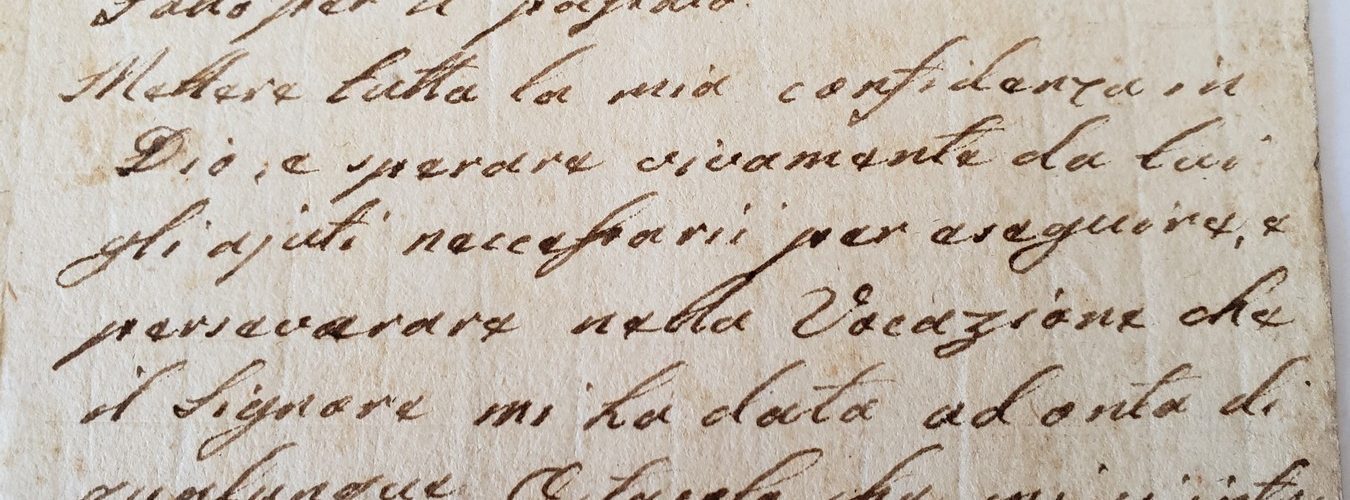 per il
Mettere tutta la mia confidenza in
Dio, e sperare vivamente da lui
gli ajuti neccessarii per eseguire, e
perseverare nella Vocazione che
il Signore mi ha data ad onta di
qualunque Ostacolo che mi